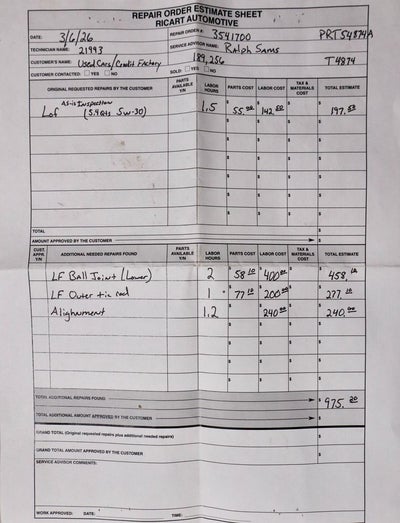 REPAIR ORDER ESTIMATE SHEET
RICART AUTOMOTIVE
DATE: 3/6/26 REPAIR ORDER #: 3541700 PRT54874A
TECHNICIAN NAME: 21993 SERVICE ADVISOR NAME: Ralph Sams
CUSTOMER'S NAME: Used Cars/Credit Factory 189,256 T4874
CUSTOMER CONTACTED: YES NO SOLD: YES NO
ORIGINAL REQUESTED REPAIRS BY THE CUSTOMER PARTS AVAILABLE Y/N LABOR HOURS PARTS COST LABOR COST TAX & MATERIALS COST TOTAL ESTIMATE
As-is Inspection
Lof (5.4 Qts 5w-30) 1.5 $ 55. $ 142. $ $ 197.
TOTAL $
AMOUNT APPROVED BY THE CUSTOMER $
CUST. APPR. Y/N ADDITIONAL NEEDED REPAIRS FOUND PARTS AVAILABLE Y/N LABOR HOURS PARTS COST LABOR COST TAX & MATERIALS COST TOTAL ESTIMATE
LF Ball Joint (Lower) 2 $ 58 10 $ 400 00 $ $ 458. 10
LF Outer tie rod 1 $ 77 10 $ 200 00 $ $ 277. 10
Alighnment 1.2 $ $ 240 00 $ $ 240. 00
TOTAL ADDITIONAL REPAIRS FOUND $ 975. 20
TOTAL ADDITIONAL AMOUNT APPROVED BY THE CUSTOMER $
GRAND TOTAL (Original requested repairs plus additional needed repairs) $
GRAND TOTAL AMOUNT APPROVED BY THE CUSTOMER $
SERVICE ADVISOR COMMENTS:
WORK APPROVED: DATE: TIME: